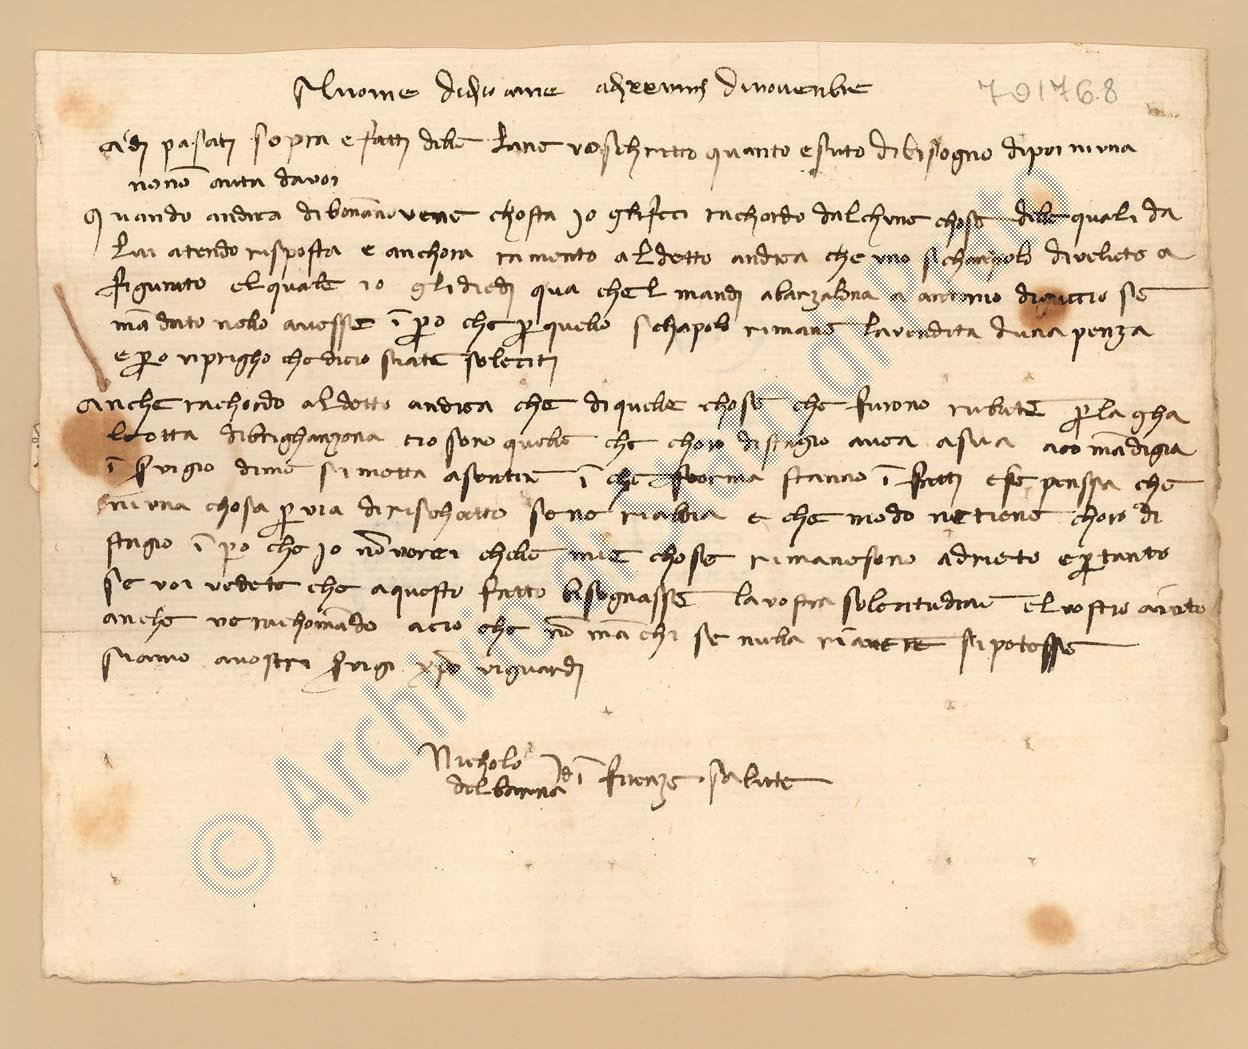 Al nome di dio ame adi xxviiij di novenbre
791768
A di pasati sopra e fatti delle lane vo schritto quanto e suto di bisogno di poi niuna
nonn o auta da voi
Quando andrea di bonanno vene chosta io gli feci richordo dalchune chose delle quali da
lui atendo risposta e anchora ramento al detto andrea che uno schanpolo di velluto a
figurato el quale io gli diedi qua chel mandi a barzalona a antonio se
mandato nollo avesse in pero che per quello schapolo rimane la vendita duna penza
e pero vi pregho che di cio siate soleciti
Anche richordo al detto andrea che di quelle chose che furono rubate per la gha
leotta di cio sono quelle che choro di stagio avea a sua acomandigia
in servigio di me si metta a sentire in che forma stanno i fatti e se penssa che
niuna chosa per via di rischatto se ne riabbia e che modo ne tiene choro di
stagio in pero che io non vorei chelle mie chose rimanesono adrieto e per tanto
se voi vedete che a questo fatto bisognasse la vostra solecitudine el vostro aiuto
anche ve rachomando acio che non manchi se nulla riavere si potesse
siamo a vostri servigi christo vi guardi
Nicholo
del in Firenze salute
© Archivio di Stato di Prato